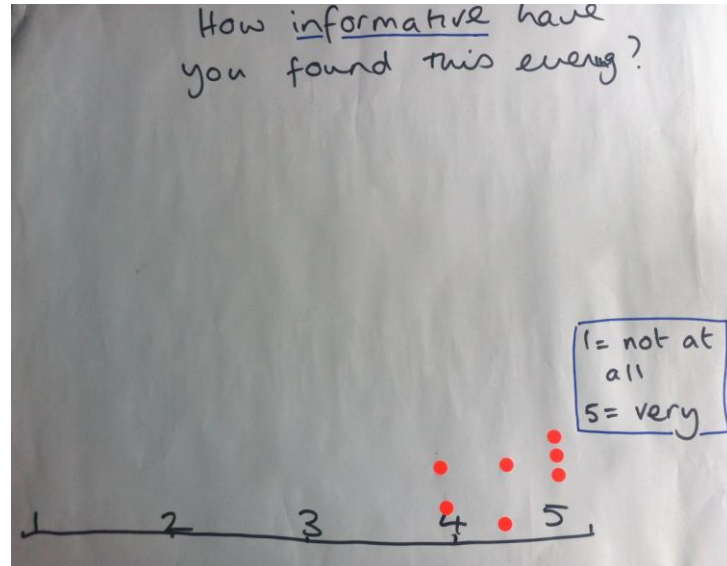 How informative have
you found this evening?
1= not at
all
5= very
1 2 3 4 5